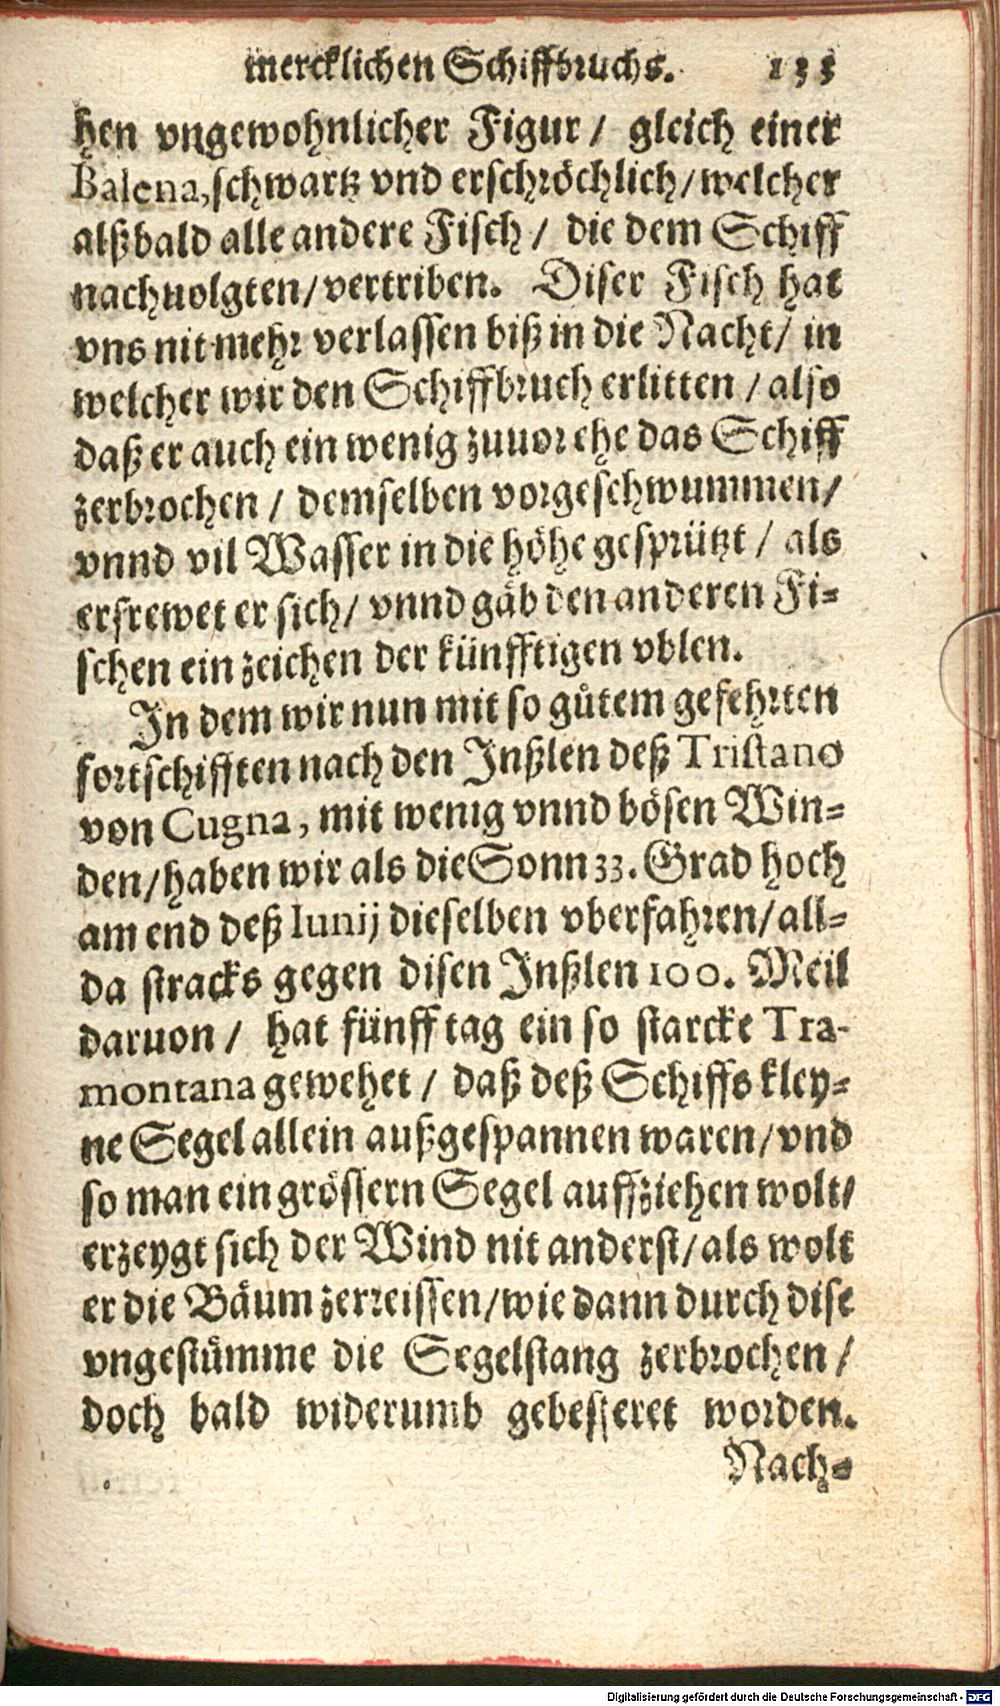 mercklichen Schiffbruchs. 133
hen vngewohnlicher Figur / gleich einer
Balena, schwartz vnd erschröchlich / welcher
alßbald alle andere Fisch / die dem Schiff
nachuolgten / vertriben. Diser Fisch hat
vns nit mehr verlassen biß in die Nacht / in
welcher wir den Schiffbruch erlitten / also
daß er auch ein wenig zuuor ehe das Schiff
zerbrochen / demselben vorgeschwummen /
vnnd vil Wasser in die höhe gesprützt / als
erfrewet er sich / vnnd gäb den anderen Fi=
schen ein zeichen der künfftigen vblen.
In dem wir nun mit so gůtem gefehrten
fortschifften nach den Inßlen deß Tristano
von Cugna, mit wenig vnnd bösen Win=
den / haben wir als die Sonn 33. Grad hoch
am end deß Iunij dieselben vberfahren / all=
da stracks gegen disen Inßlen 100. Meil
daruon / hat fünff tag ein so starcke Tra-
montana gewehet / daß deß Schiffs kley=
ne Segel allein außgespannen waren / vnd
so man ein grössern Segel auffziehen wolt /
erzeygt sich der Wind nit anderst / als wolt
er die Bäum zerreissen / wie dann durch dise
vngestümme die Segelstang zerbrochen /
doch bald widerumb gebesseret worden.
Nach=
Digitalisierung gefördert durch die Deutsche Forschungsgemeinschaft - DFG